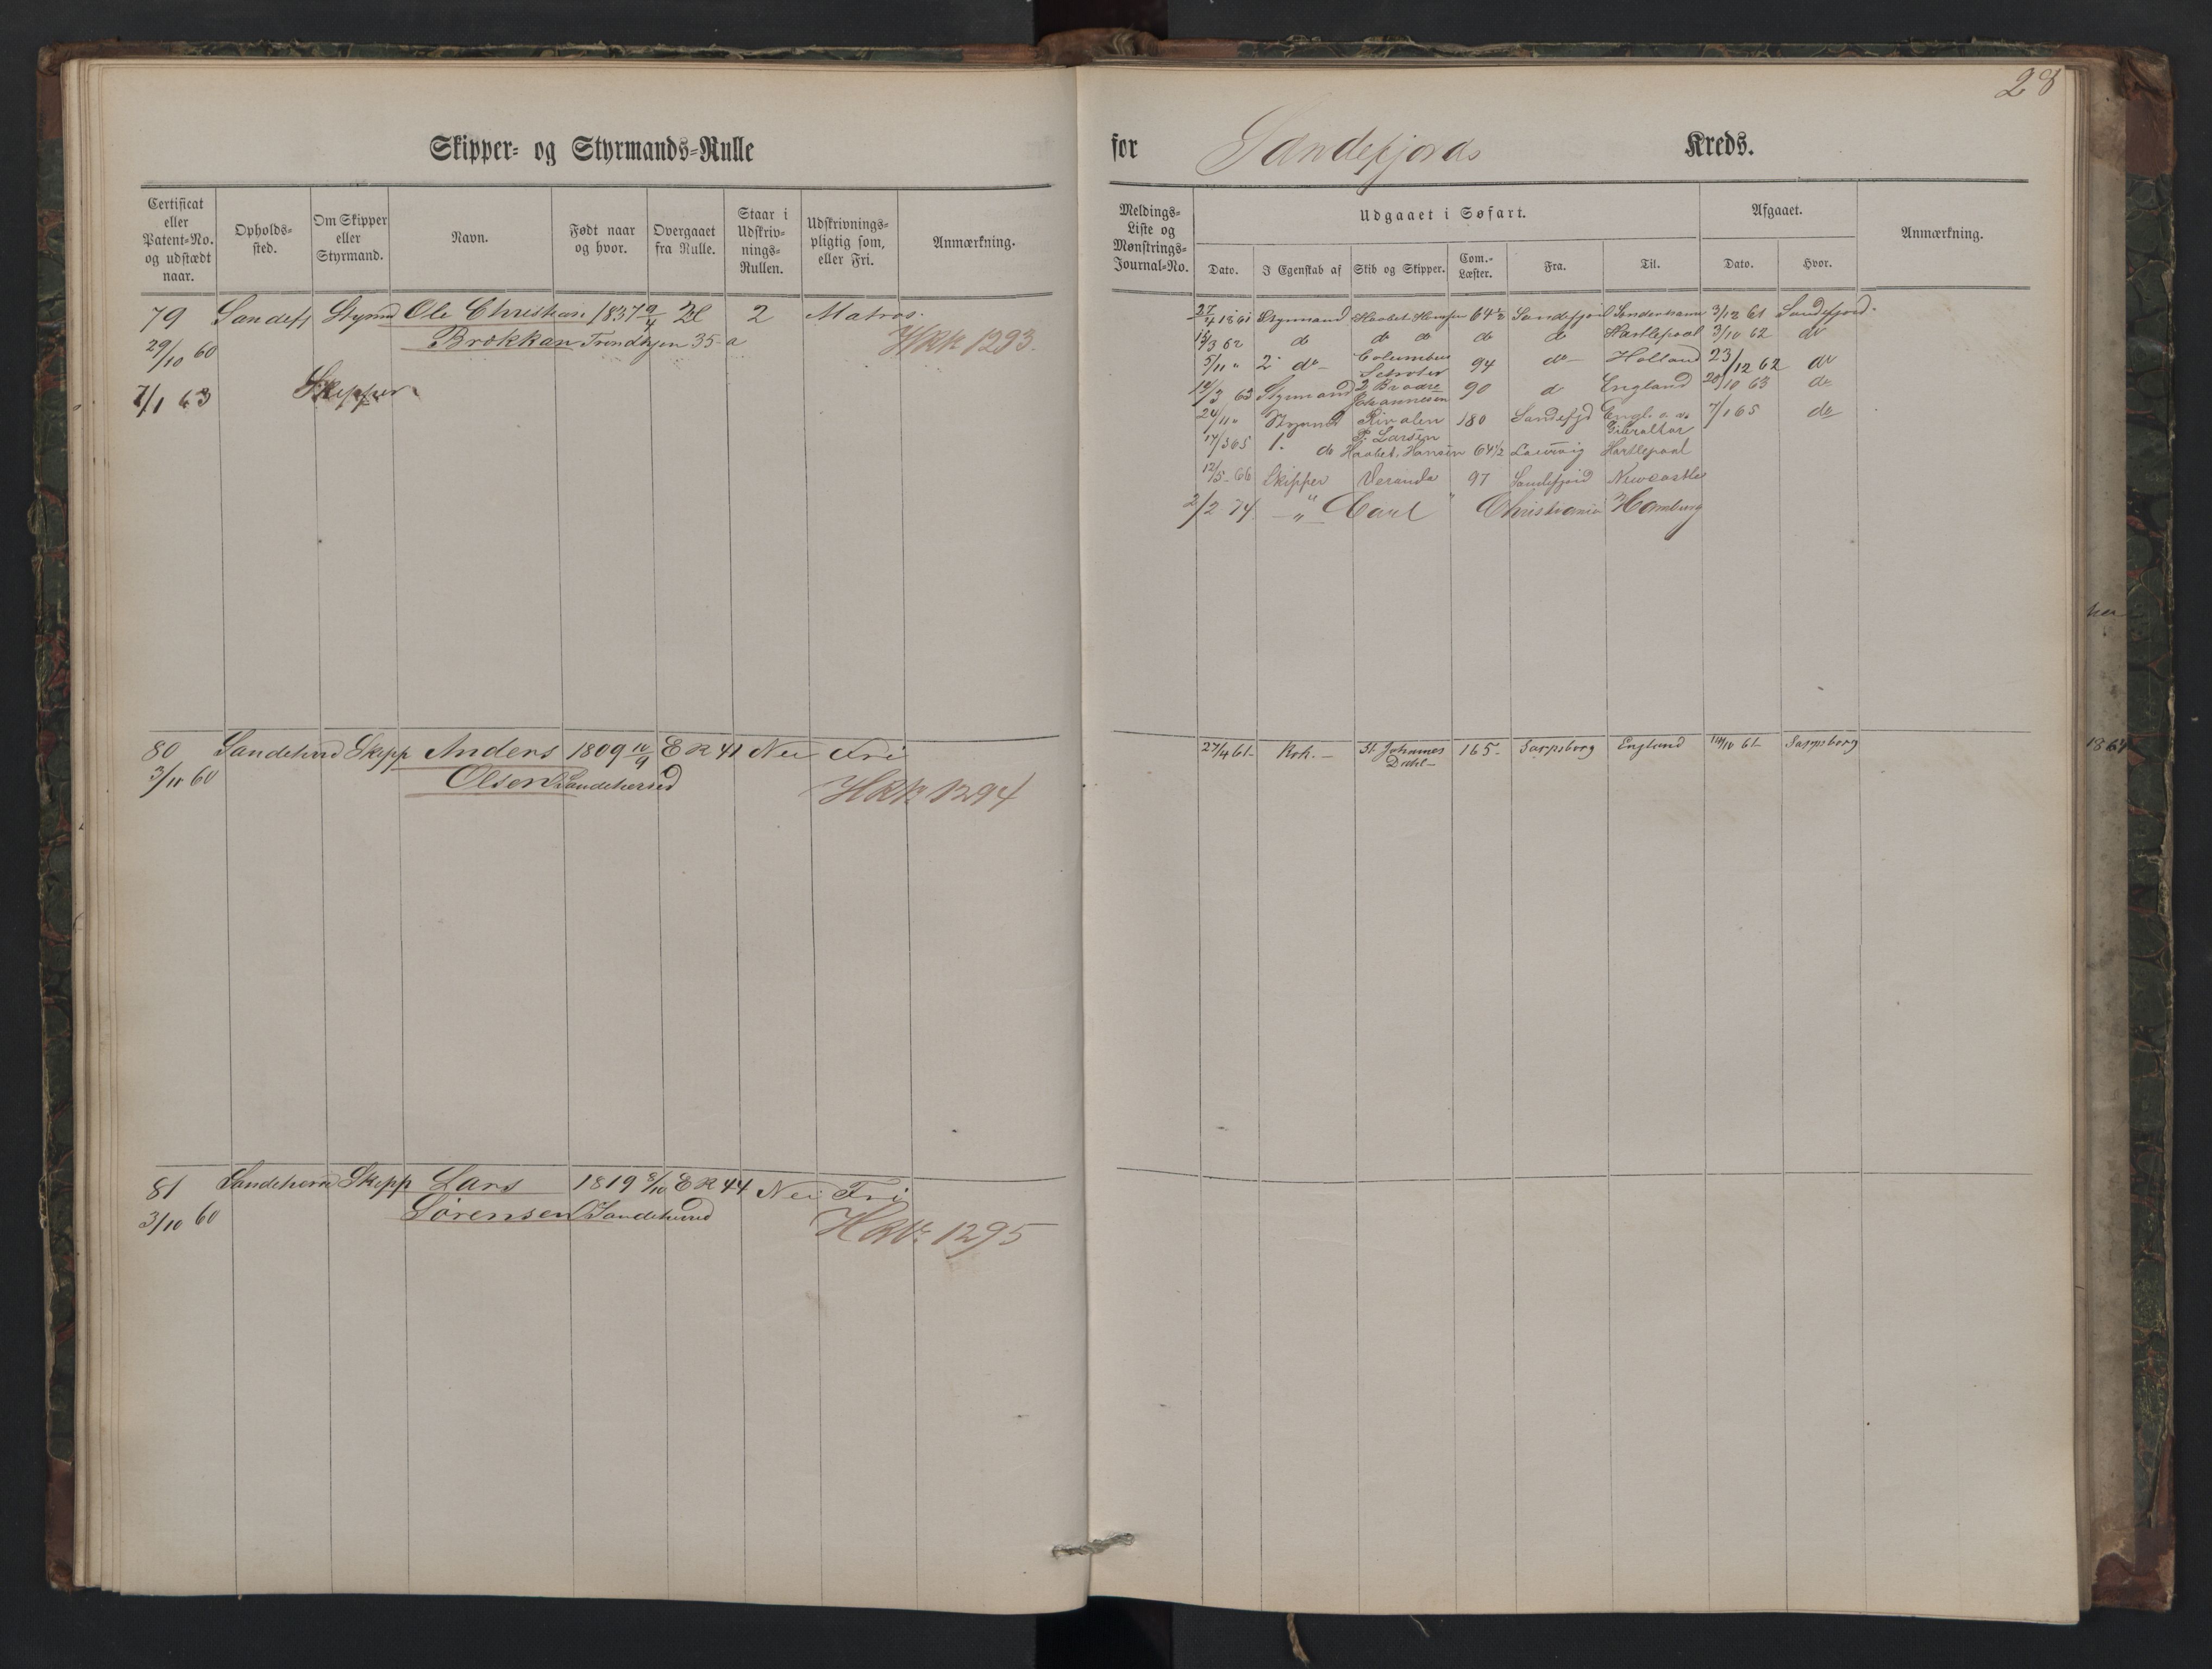 28
Skipper- og Styrmands-Rulle for Sandefjords Kreds.
Certifikat eller Patent-No. og udstædt naar.
Opholds-sted.
Om Skipper eller Styrmand.
Navn.
Født naar og hvor.
Overgaaet fra Rulle.
Staar i Udskriv-nings-Rullen.
Udskrivnings-pligtig som, eller Fri.
Anmærkning.
Meldings-Liste og Mønstrings-Journal-No.
Udgaaet i Søfart.
Dato.
I Egenskab af
Skib og Skipper.
Com.-Læster.
Fra.
Til.
Afgaaet.
Dato.
Hvor.
Anmærkning.
79 Sandefj Styrmd Ole Christian 1837 9/4 2 Matros.
29/10 60 Brokkan Trondhjen 35 a HRR 1293.
7/1 63 Skipper
27/4 1861 Styrmand Haabet Hansen 64 1/2 Sandefjord 3/12 61 Sandefjord.
13/3 62 do do do do do Hartlepool 3/10 62 do
5/11 " 2 do Columbus 94 do Holland 23/12 62 do
14/3 63 Styrmand 2 Brødre Johannesen 90 d England 20/10 63 do
24/11 " Styrmd Rivalen P. Larsen 180 Sandefjd Engl. Gibraltar 7/1 65 do
17/3 65 1. do Haabet, Hansen 64 1/2 Laurvig Hartlepool
12/5 66 Skipper Veranda 97 Sandefjord Newcastle
2/2 74 " Carl " Christiania Hamburg
80 Sandeherred Skipp Anders 1809 10/9 E R 41 Nei Fri
3/10 60 Olsen Sandeherred HRR 1294
27/4 61 Kok. St Johannes Dahl 165 Sarpsborg England 14/10 61 Sarpsborg
81 Sandeherred Skipp Lars 1819 3/10 E R 44 Nei Fri
3/10 60 Sørensen Sandeherred HRR 1295